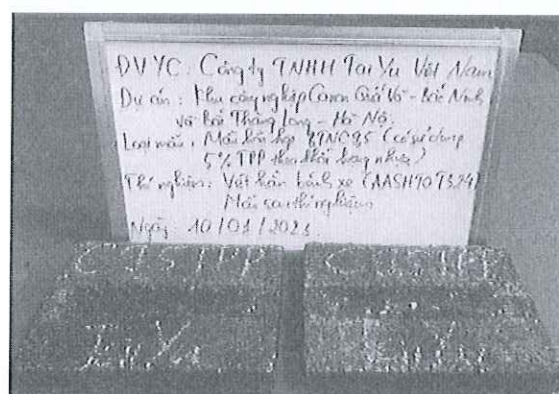 ĐVYC: Công ty TNHH Tai Yu Việt Nam
Dự án: Khu công nghiệp Canon Quế Võ - Bắc Ninh
và Bắc Thăng Long - Hà Nội.
Loại mẫu: Mẫu hỗn hợp BTNC 9,5 (có sử dụng
5% TPP theo khối lượng nhựa)
Thí nghiệm: Vệt hằn bánh xe (AASHTO T324)
Mẫu sau thí nghiệm
Ngày: 10/01/2023
TPP
Tai Yu
Tai Yu